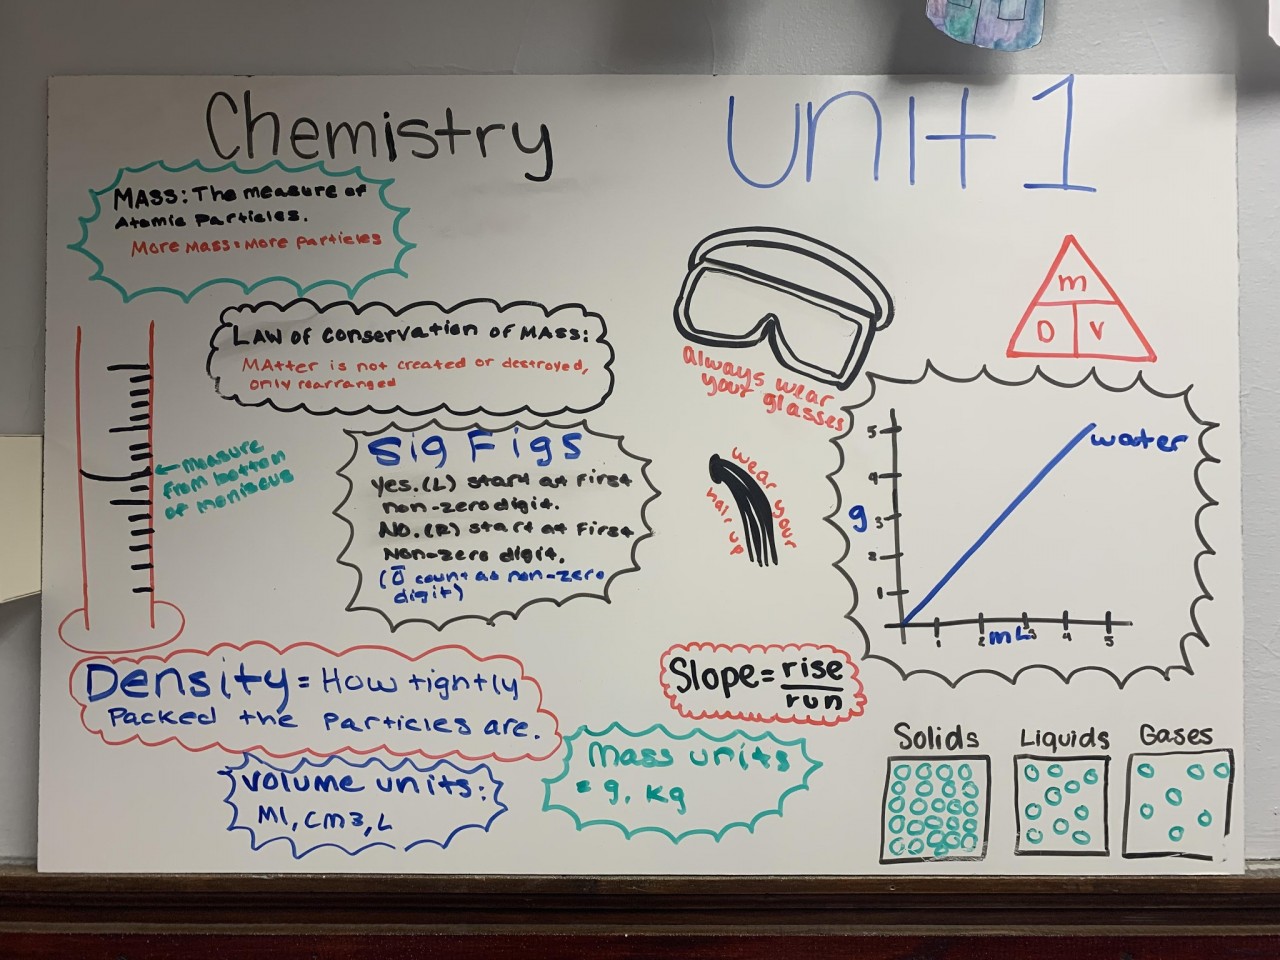 Chemistry
Unit 1
MASS: The measure of
Atomic Particles.
More Mass = More Particles
LAW of conservation of MASS:
MAtter is not created or destroyed,
only rearranged
← Measure
from bottom
of meniscus
Sig Figs
Yes. (L) start at First
non-zero digit.
No. (R) start at First
Non-zero digit.
(0̄ count as non-zero
digit)
always wear
your glasses
wear your
hair up
m
D V
5
4
3
2
1
g
water
1 2 3 4 5
mL
Slope = rise
run
Density = How tightly
Packed the Particles are.
Volume units:
Ml, cm3, L
Mass units
= g, kg
Solids Liquids Gases